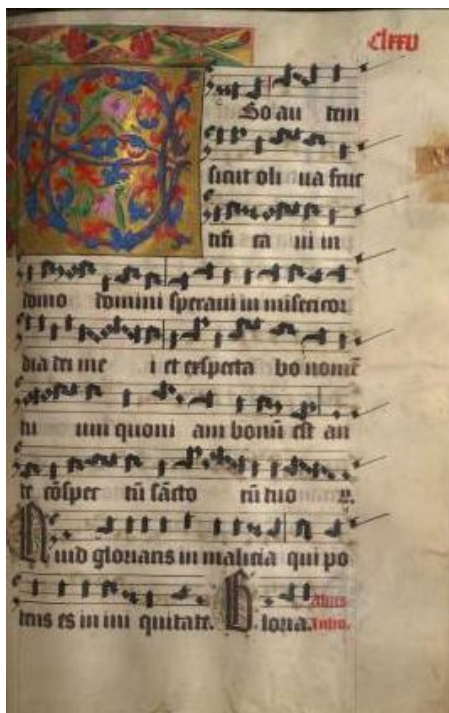 clxxv
EGo au tem
sicut oli ua fruc
tifi ca ui in
domo domini speraui in misericor
dia dei me i et exspecta bo nomē
tu um quoni am bonū est an
te cōspec tū sācto rū tuo rū.
Quid gloriaris in malicia qui po
tens es in ini quitate. Gloria. Alius
Intro.